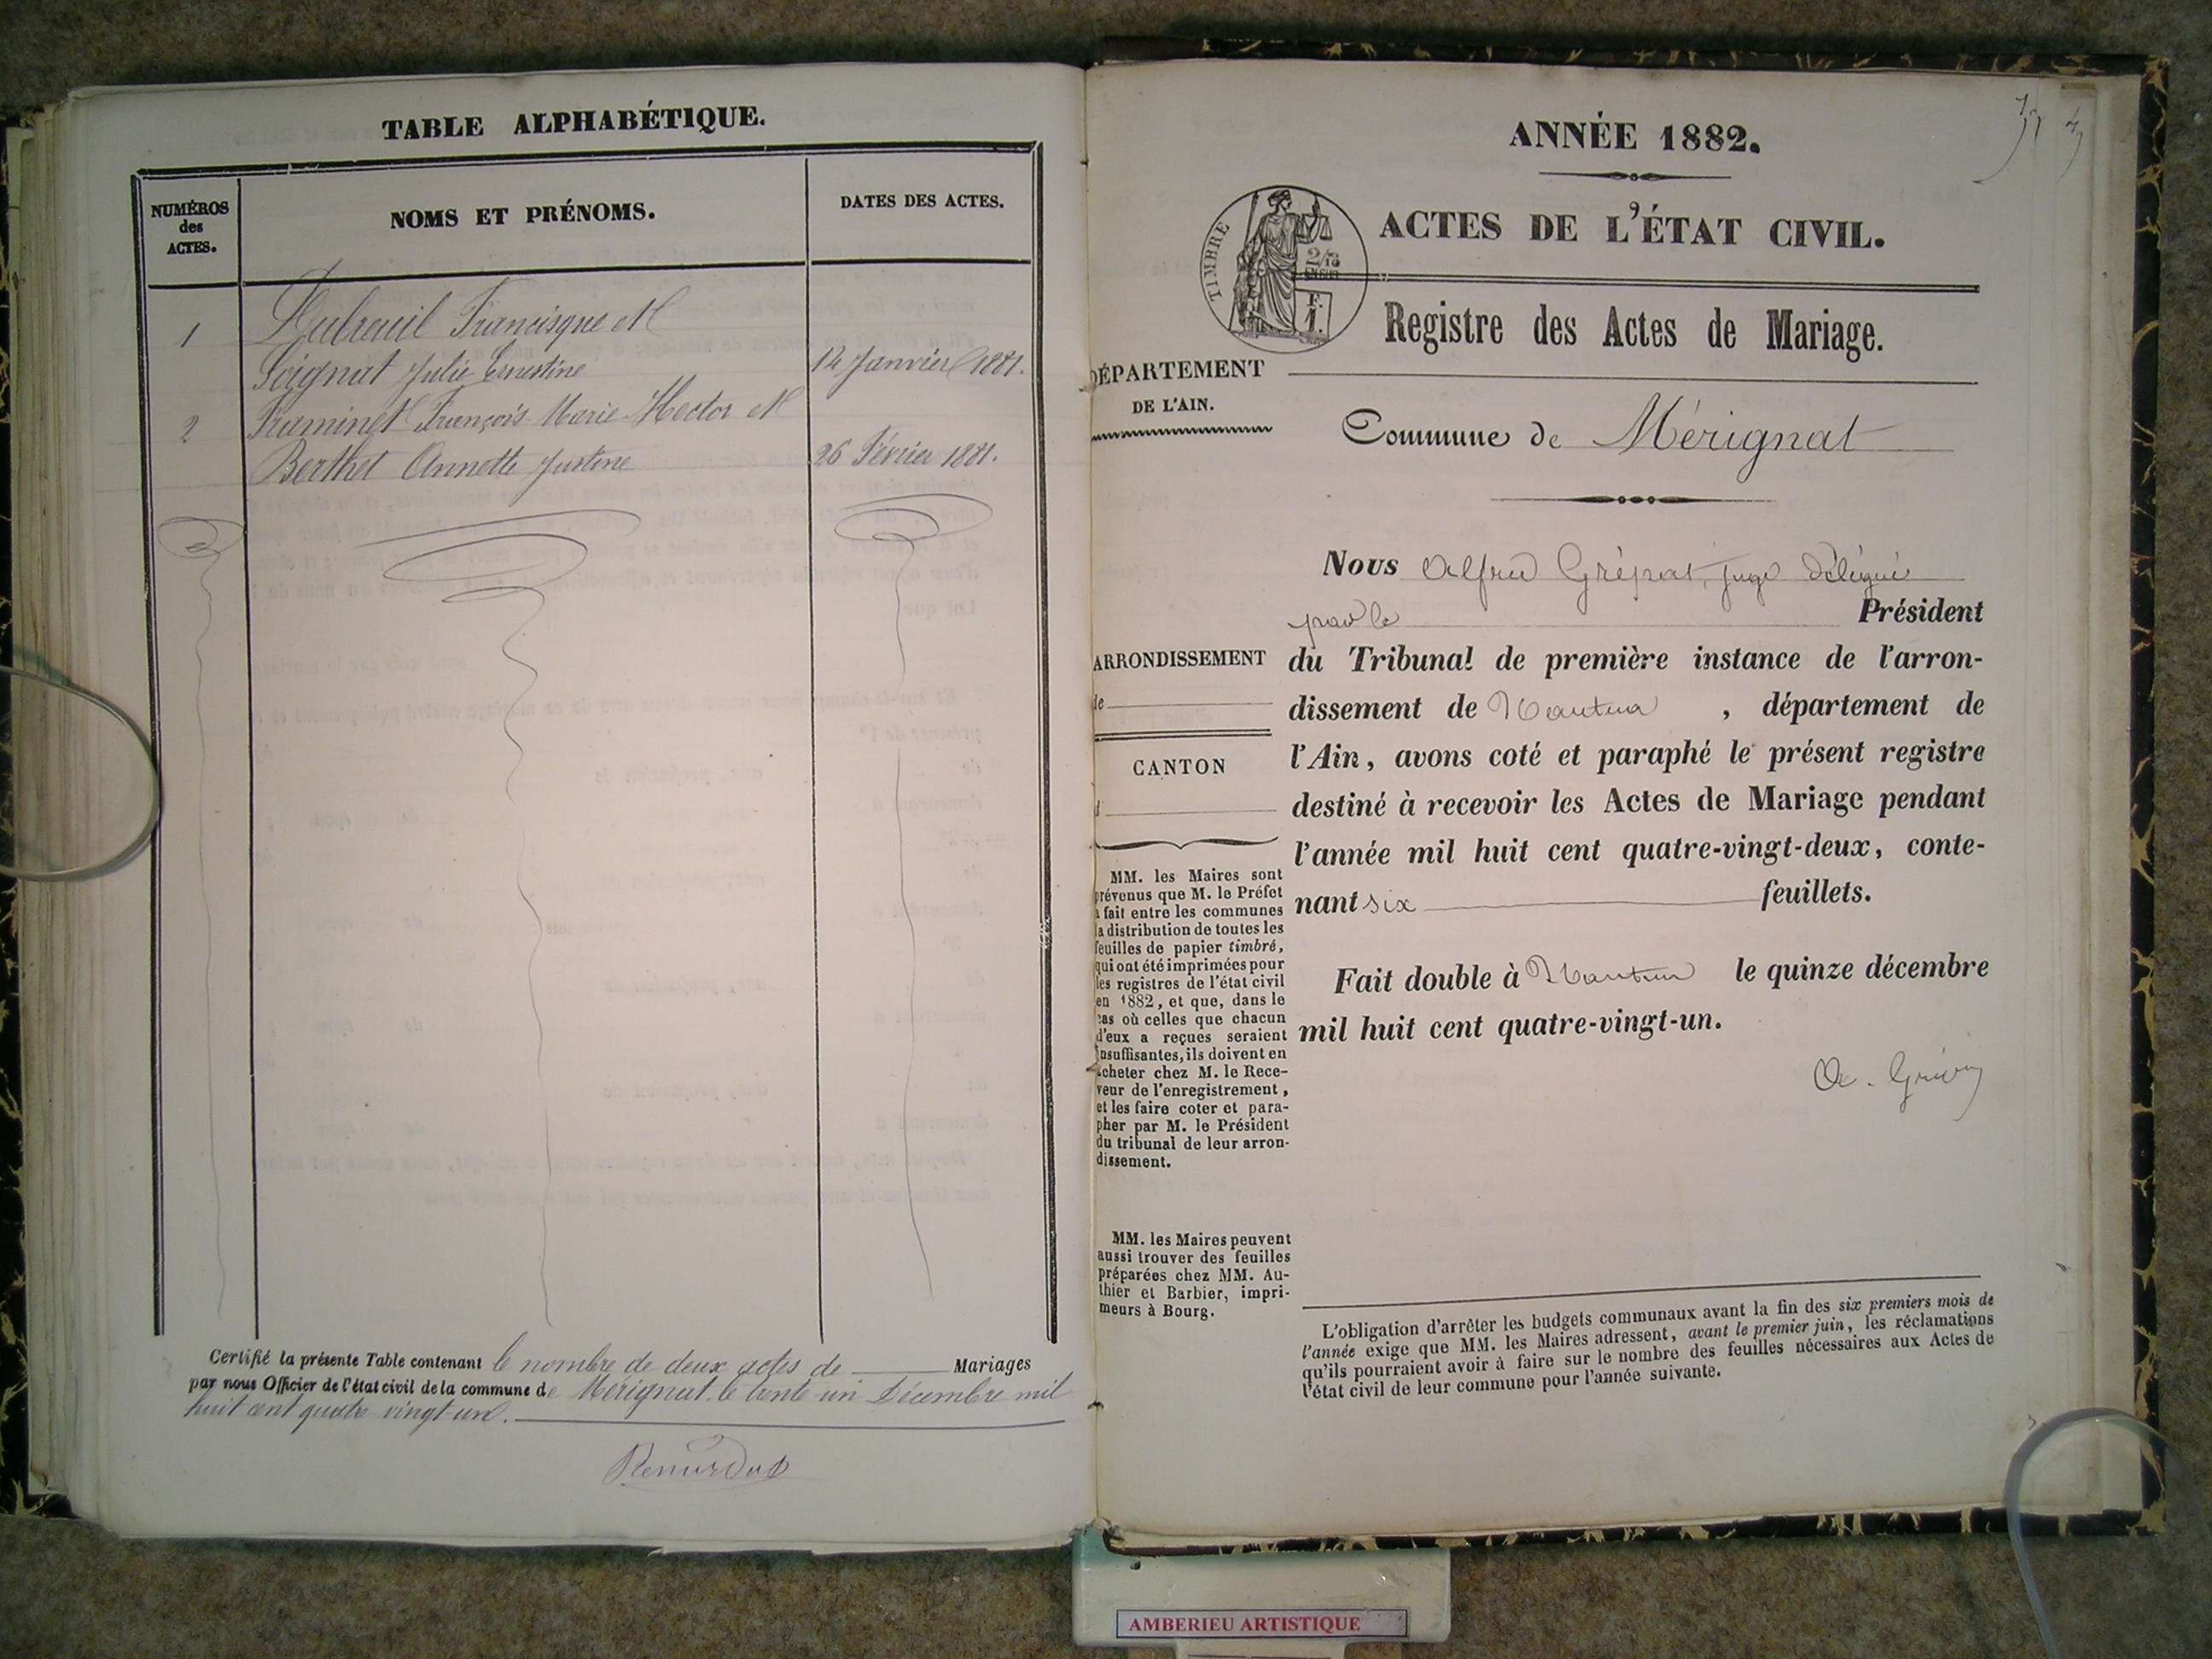 TABLE ALPHABÉTIQUE.
NUMÉROS
des
ACTES.
NOMS ET PRÉNOMS.
DATES DES ACTES.
1
Dubreuil Francisque et
Soignat Julie Ernestine
14 Janvier 1881.
2
François Marie Hector et
Berthet Annette Justine
26 Février 1881.
Certifié la présente Table contenant le nombre de deux actes de Mariages
par nous Officier de l'état civil de la commune de Mérignat le trente un Décembre mil
huit cent quatre vingt un.
ANNÉE 1882.
TIMBRE
ACTES DE L'ÉTAT CIVIL.
Registre des Actes de Mariage.
DÉPARTEMENT
DE L'AIN.
Commune de Mérignat
Nous Alfred juge délégué
par le Président
du Tribunal de première instance de l'arron-
dissement de Nantua, département de
l'Ain, avons coté et paraphé le présent registre
destiné à recevoir les Actes de Mariage pendant
l'année mil huit cent quatre-vingt-deux, conte-
nant six feuillets.
Fait double à Nantua le quinze décembre
mil huit cent quatre-vingt-un.
ARRONDISSEMENT
de
CANTON
d
MM. les Maires sont
prévenus que M. le Préfet
a fait entre les communes
la distribution de toutes les
feuilles de papier timbré,
qui ont été imprimées pour
les registres de l'état civil
en 1882, et que, dans le
cas où celles que chacun
d'eux a reçues seraient
insuffisantes, ils doivent en
acheter chez M. le Rece-
veur de l'enregistrement,
et les faire coter et para-
pher par M. le Président
du tribunal de leur arron-
dissement.
MM. les Maires peuvent
aussi trouver des feuilles
préparées chez MM. Au-
thier et Barbier, impri-
meurs à Bourg.
L'obligation d'arrêter les budgets communaux avant la fin des six premiers mois de
l'année exige que MM. les Maires adressent, avant le premier juin, les réclamations
qu'ils pourraient avoir à faire sur le nombre des feuilles nécessaires aux Actes de
l'état civil de leur commune pour l'année suivante.
AMBERIEU ARTISTIQUE